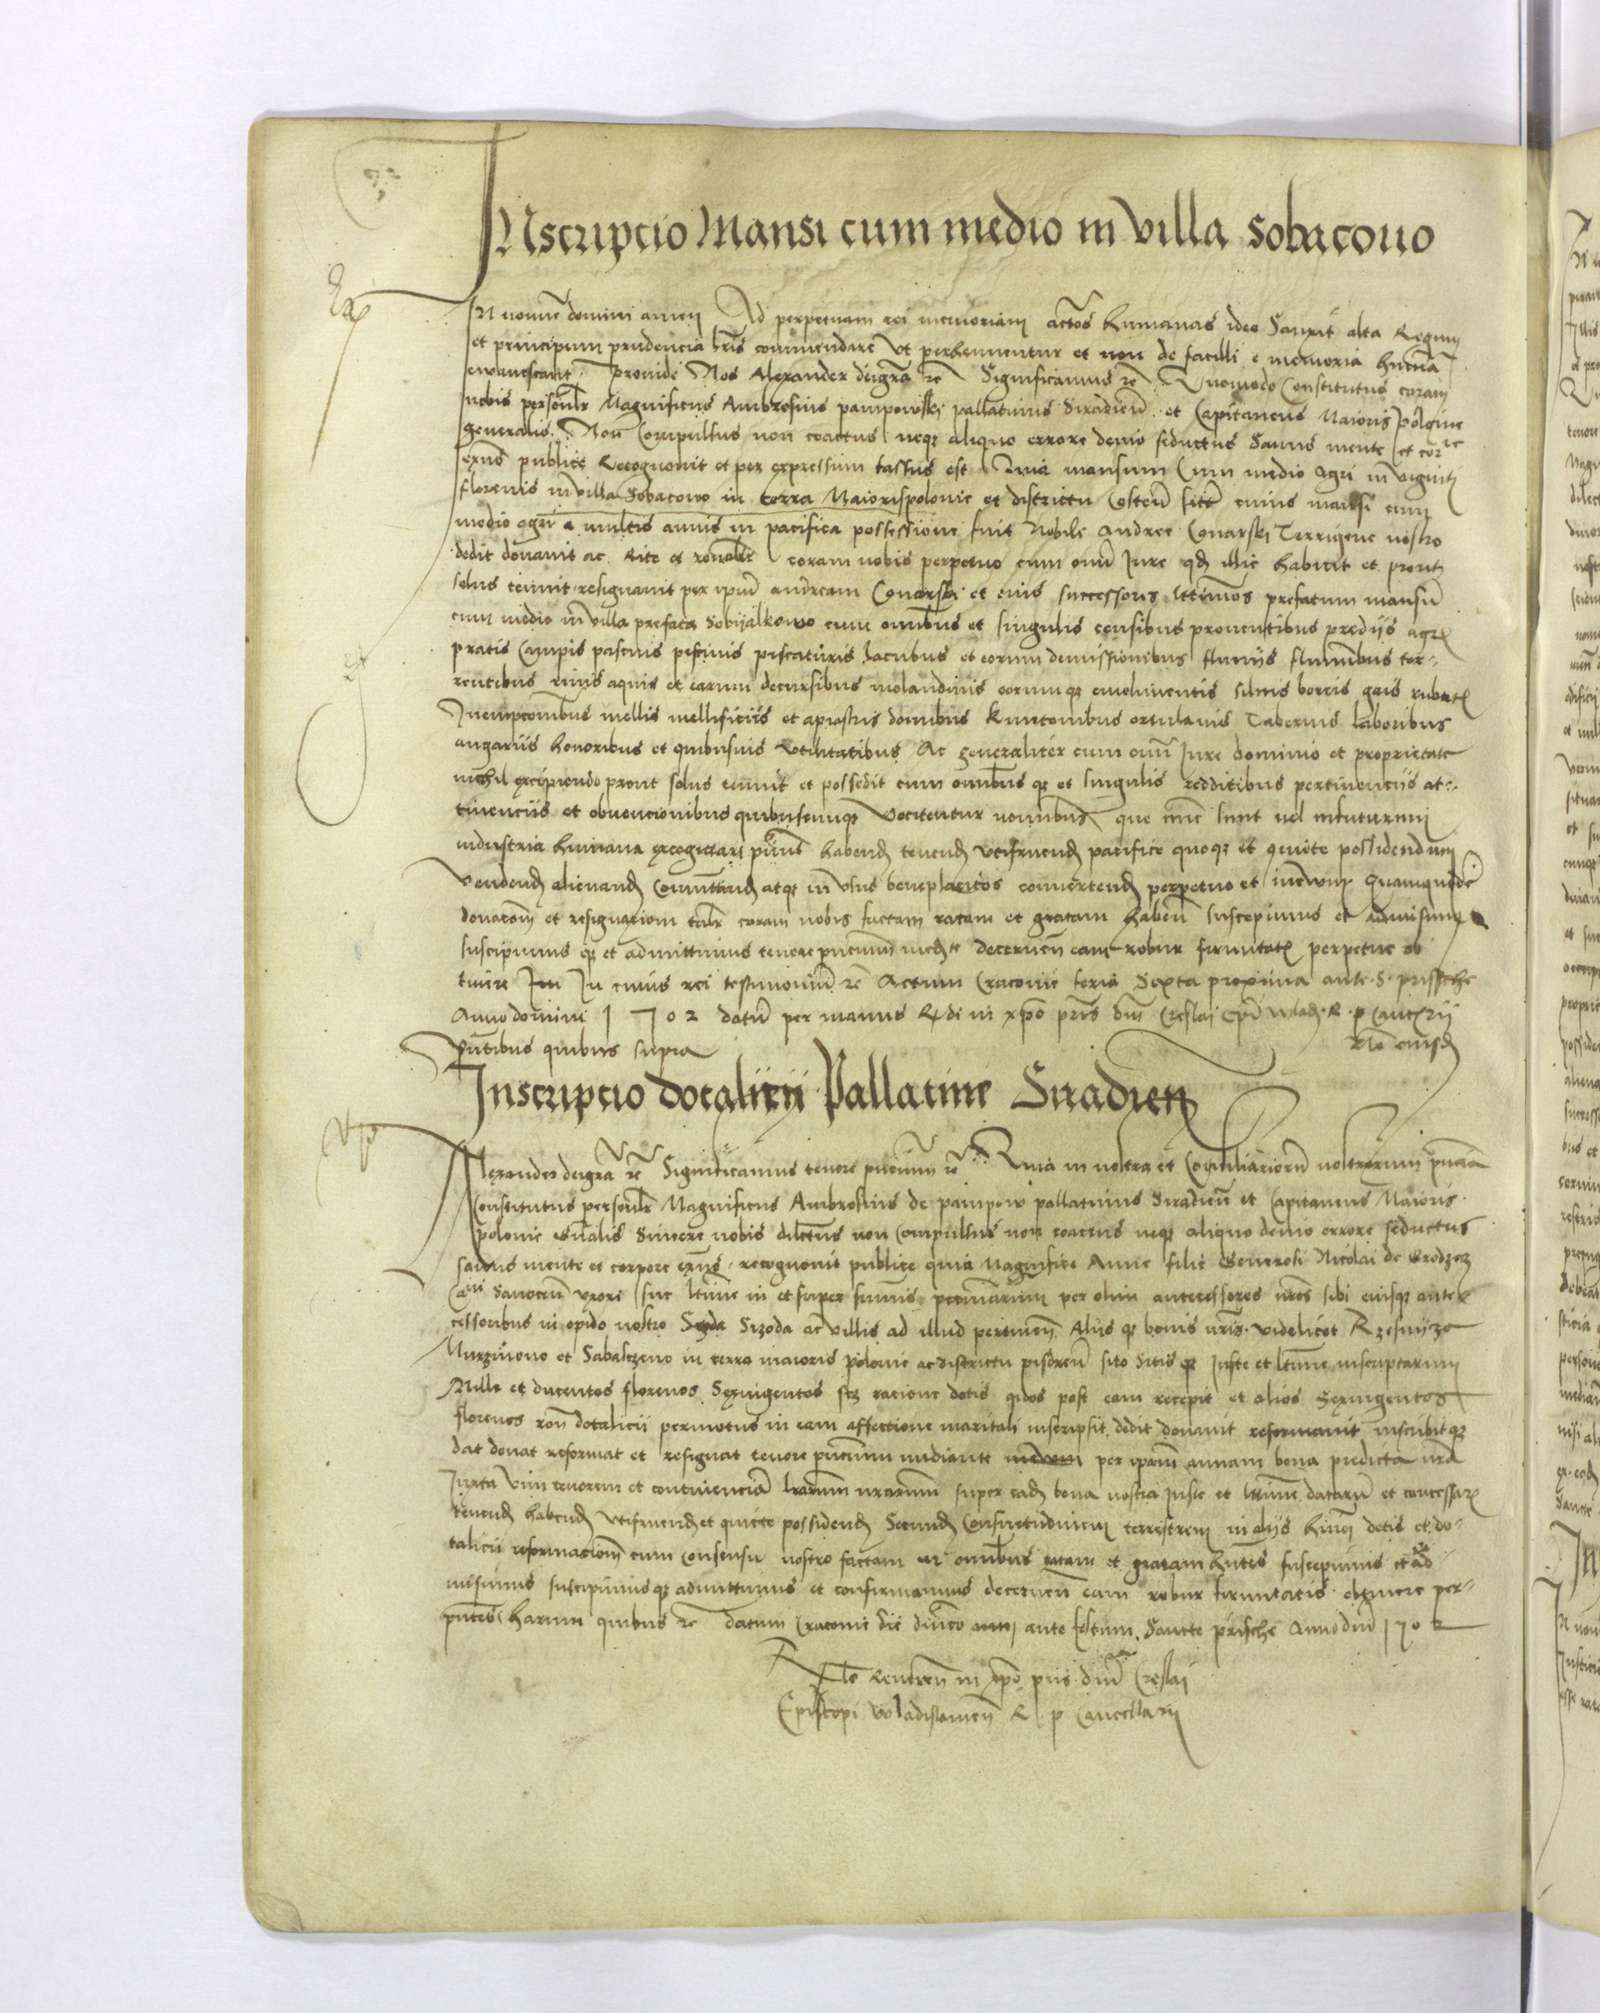 Inscripcio Mansi cum medio in villa Sobacouo
IN nomine domini amen Ad perpetuam rei memoriam actos humanas ideo Sanxit alta Regum
et principum prudencia lris commendare Ut perhennentur et non de facilli e memoria
ewanescant. Proinde Nos Alexander deigra re Significamus re Quomodo Constitutus coram
nobis personlr Magnificus Ambrosius pampowski pallatinus Siradien et Capitaneus Maioris Polonie
generalis. Non Compulsus non coactus neqz aliquo errore devio seductus Sanus mente et corre
exns publice Recognovit et per expressum fassus est Quia mansum Cum medio agri in viginti
florenis in villa Sobacowo in terra Maiorispolonie et districtu Costen sitis cuius mansi cum
medio agri a multis annis in pacifica possessione fuit Nobile Andree Conarski Terrigene nostro
dedit donavit ac Rite et ronablr coram nobis perpetuo cum omni Jure qd illic habuit et prout
solus tenuit resignavit per ipm andream Conarski et eius successores lttimos prefatum mansum
cum medio in villa prefata Sobyalkowo cum omibus et singulis censibus proventibus predijs agris
pratis Campis pascuis piscinis piscaturis lacubus et eorum demissionibus fluvijs fluminibus tor-
rentibus rivis aquis et earum decursibus molandinis eorumqz emolumentis silvis borris gais rubetis
Quempcombus mellis mellificijs et apiastris donibus kmetonibus ortulanis Tabernis laboribus
angarijs honoribus et quibusvis utilitatibus Ac generaliter cum omi Jure dominio et proprietate
nichil excipiendo prout solus tenuit et possedit cum omibus qz et singulis redditibus pertinencijs at-
tinencijs et obvencionibus quibuscumqz vocitentur nominibus que nunc sunt vel infuturum
industria humana excogitari habend tenend utifruend pacifice quoqz et quiete possidendum
Vendend alienand Commutand atqz in usus beneplacitos convertend perpetuo et inevum Quamquidem
donacom et resignacionem talr coram nobis factam ratam et gratam haben suscepimus et admisimus
suscipimus qz et admittimus tenore pncium decernen eam robur firmitatis perpetue ob
tinere In cuius rei testimonium re Actum Cracovie feria Sexta proxima ante S. prissche
Anno domini 1702 datum per manus Rdi in xpo pris dni Creslai Epi wlad. R. p Cancrij
Pntibus quibus supra Rlo eiusd
Inscripcio dotalicij Pallatine Siradien
Alexander deigra re Significamus tenore pncium re Quia in nostra et Consiliariorum nostrorum pncia
Constitutus personlr Magnificus Ambrosius de pampow pallatinus Siradien et Capitaneus Maioris
polonie Gnalis Sincere nobis dilectus non Compulsus non coactus neqz aliquo devio errore seductus
sanus mente et corpore exns, recognovit publice quia Magnifice Anne filie Generosi Nicolai de Grodzecz
Cani Sanocen uxori sue ltime in et super sumis pecuniarum per olim antecessores nros sibi eiusqz ante-
cessoribus in opido nostro Szroda ac villis ad illud pertinen Alijs qz bonis nris videlicet
Murzinowo et Sabalczewo in terra maioris polonie ac districtu pisdren sito Sitis qz Juste et ltime inscriptarum
Mille et ducentos florenos Sexingentos scz racione dotis quos post eam recepit et alios Sexingentos
florenos ron dotalicij permotus in eam affectione maritali inscripsit dedit donavit reformavit inscribitqz
dat donat reformat et resignat tenore pncium mediante per ipam annam bona predicta nra
Juxta vim tenorem et continenciam lrarum nrarum super ead bona nostra juste et lttime datarum et concessar
tenend habend utifruend et quiete possidend Secund Consuetudinem terrestrem in alijs huiusmodi dotis et do-
talicij reformacionem cum Consensu nostro factam in omibus ratam et gratam hntes suscepimus et ad
misimus suscipimus qz admittimus et confirmamus decernen eam robur firmitatis obtinere per-
petuis harum quibus re datum Cracovie die dnico ante festum Sancte prische Anno dni 1702
Rlo Reveren in xpo pris dni Creslai
Episcopi Wladislawien R. p Cancellarij